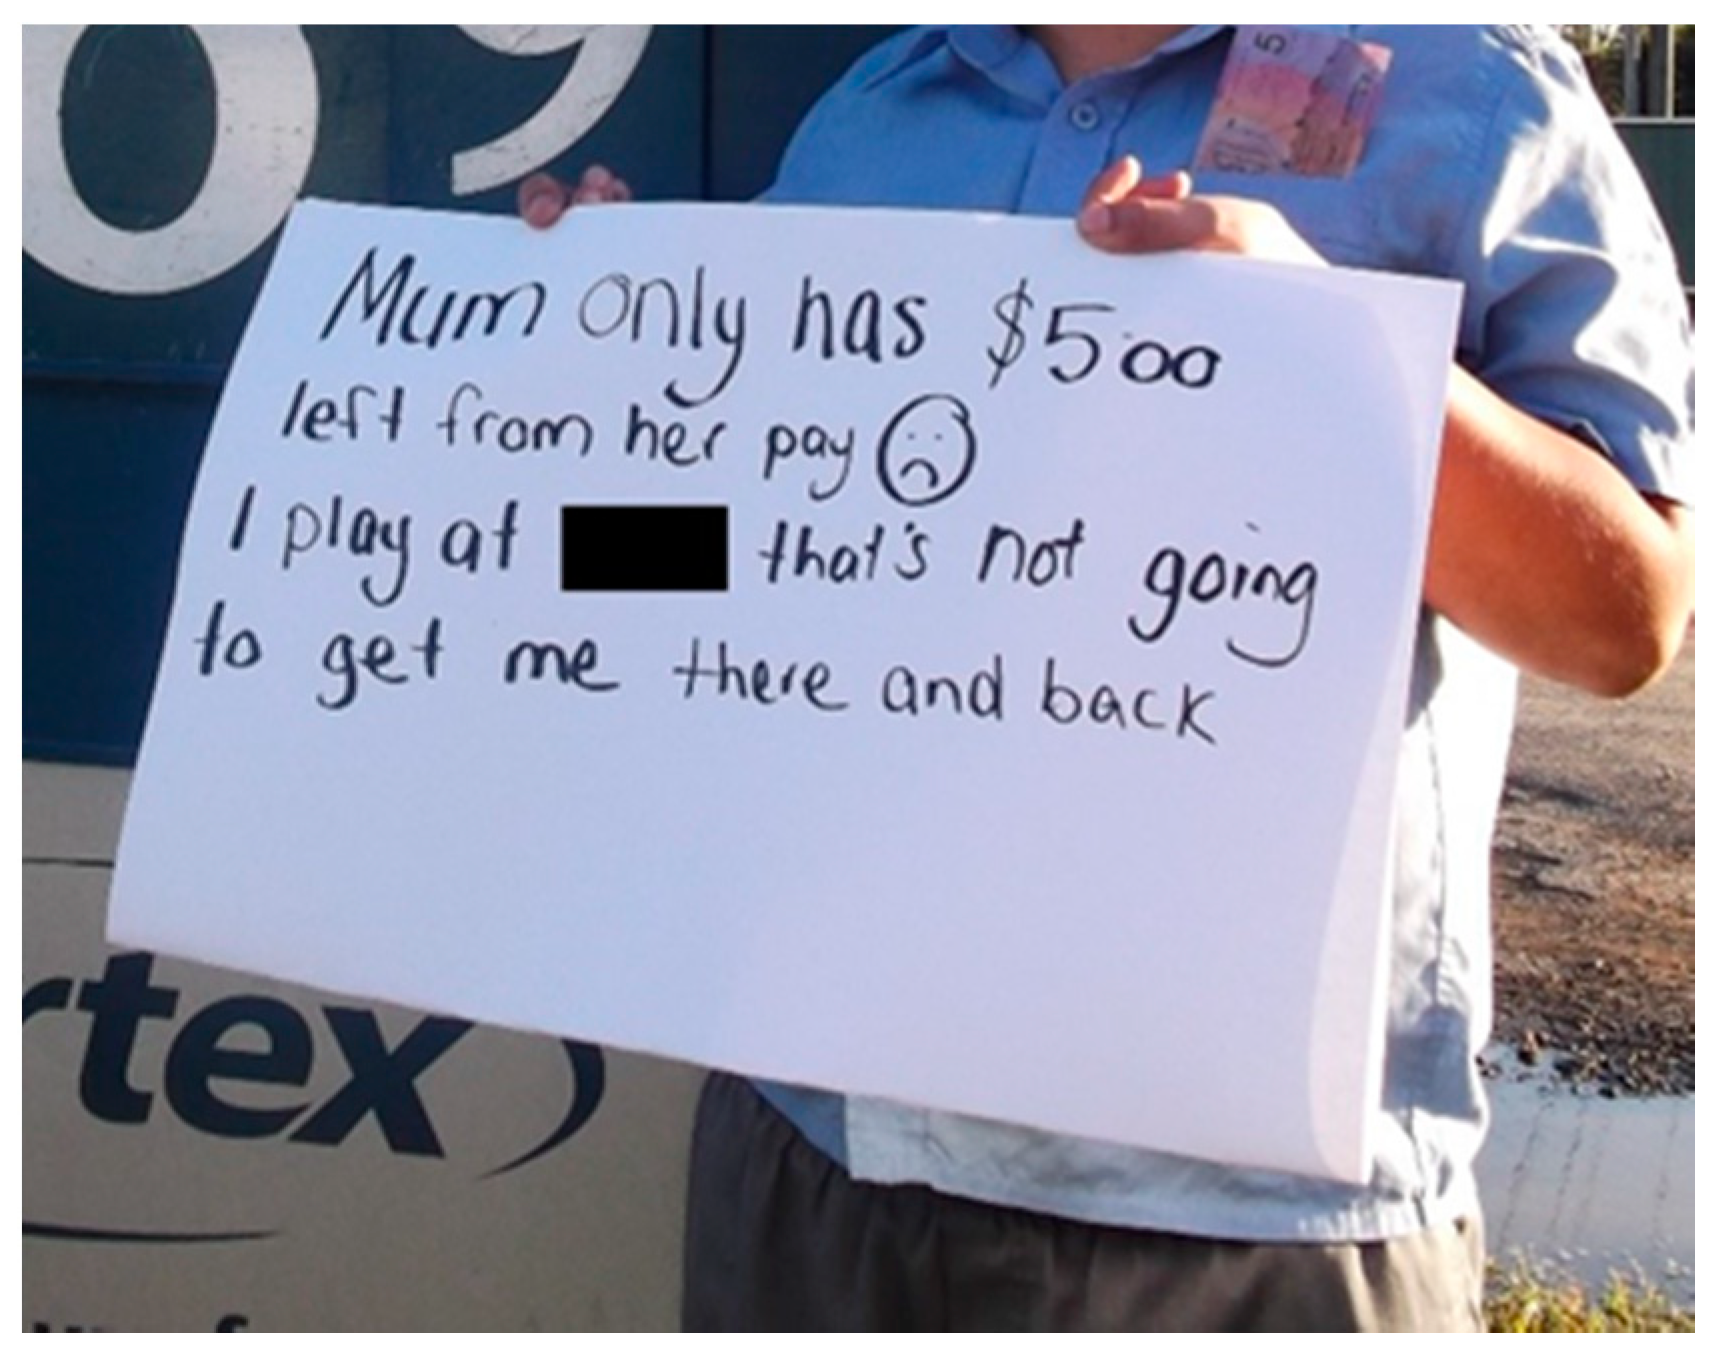 69
5
Mum only has $5.00
left from her pay
I play at that's not going
to get me there and back
rtex